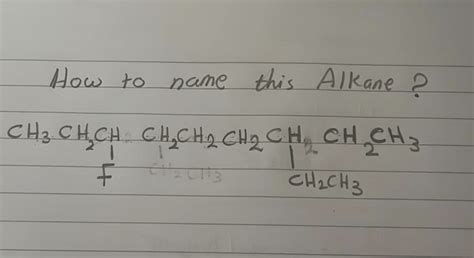 How to name this Alkane ?
CH3 CH2CH CH2CH2CH2CH2 CH2CH3
F CH2CH3
CH2CH3